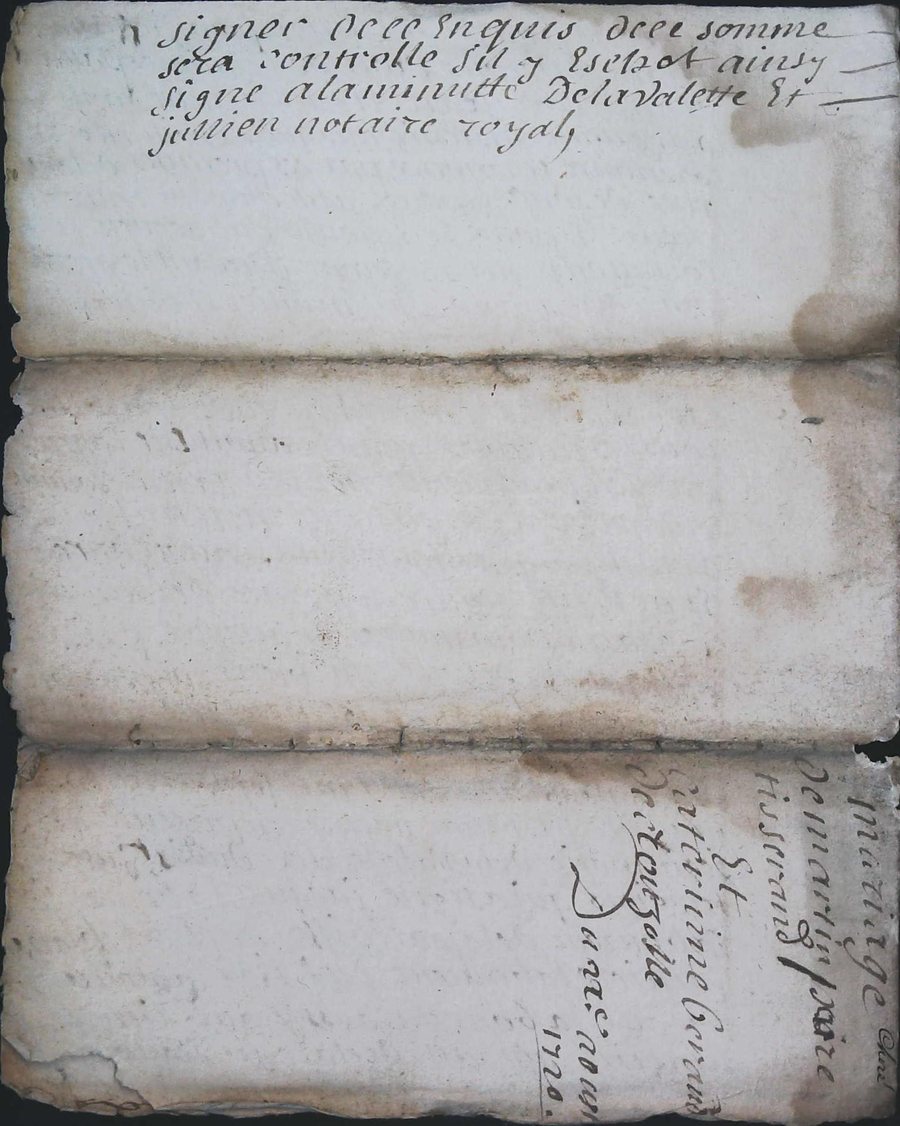 signer dece Enquis dece somme
sera controlle sil y Eschet ainsy
signe alaminutte Delavalette Et
jullien notaire royal,
mariage
demartin faure
tisserand
Et
Catterinne Gerand
De
Du xx aoust
1720.